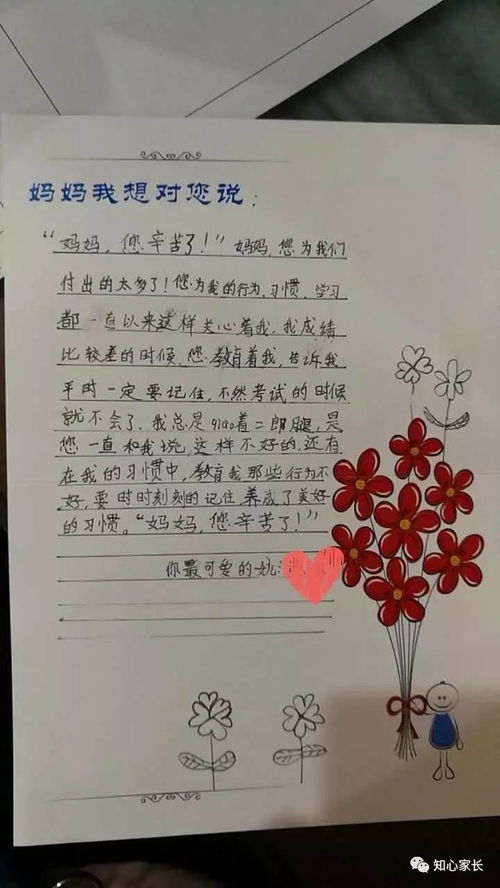 妈妈我想对您说：
“妈妈，您辛苦了！”妈妈，您为我们
付出的太多了！您为我的行为，习惯，学习
都一直以来这样关心着我，我成绩
比较差的时候，您教育着我，告诉我
平时一定要记住，不然考试的时候
就不会了，我总是qiao着二郎腿，是
您一直和我说，这样不好的，还有
在我的习惯中，教育我那些行为不
好，要时时刻刻的记住养成了美好
的习惯。“妈妈，您辛苦了！”
你最可爱的姚
知心家长